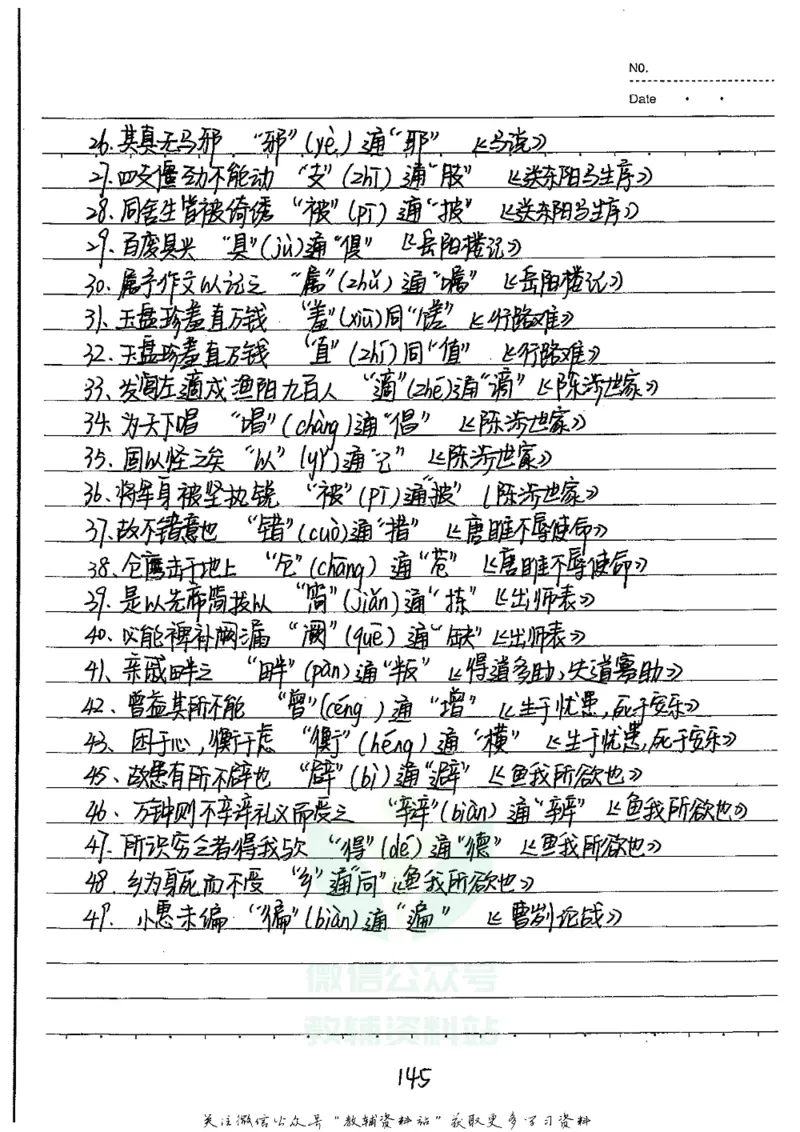 NO.
Date
26、其真无马邪 “邪”(yé)通“耶” 《马说》
27、四支僵劲不能动 “支”(zhī)通“肢” 《送东阳马生序》
28、同舍生皆被绮绣 “被”(pī)通“披” 《送东阳马生序》
29、百废具兴 “具”(jù)通“俱” 《岳阳楼记》
30、属予作文以记之 “属”(zhǔ)通“嘱” 《岳阳楼记》
31、玉盘珍羞直万钱 “羞”(xiū)同“馐” 《行路难》
32、玉盘珍羞直万钱 “直”(zhí)同“值” 《行路难》
33、发闾左適戍渔阳九百人 “適”(zhé)通“谪”《陈涉世家》
34、为天下唱 “唱”(chàng)通“倡” 《陈涉世家》
35、固以怪之矣 “以”(yǐ)通“已” 《陈涉世家》
36、将军身被坚执锐 “被”(pī)通“披” 《陈涉世家》
37、故不错意也 “错”(cuò)通“措” 《唐雎不辱使命》
38、仓鹰击于地上 “仓”(cāng)通“苍” 《唐雎不辱使命》
39、是以先帝简拔以 “简”(jiǎn)通“拣” 《出师表》
40、必能裨补阙漏 “阙”(quē)通“缺”《出师表》
41、亲戚畔之 “畔”(pàn)通“叛” 《得道多助,失道寡助》
42、曾益其所不能 “曾”(céng)通“增” 《生于忧患,死于安乐》
43、困于心,衡于虑 “衡”(héng)通“横” 《生于忧患,死于安乐》
45、故患有所不辟也 “辟”(bì)通“避” 《鱼我所欲也》
46、万钟则不辩礼义而受之 “辩”(biàn)通“辨” 《鱼我所欲也》
47、所识穷乏者得我欤 “得”(dé)通“德” 《鱼我所欲也》
48、乡为身死而不受 “乡”通“向”《鱼我所欲也》
49、小惠未徧 “徧”(biàn)通“遍” 《曹刿论战》
微信公众号
教辅资料站
145
关注微信公众号“教辅资料站”获取更多学习资料